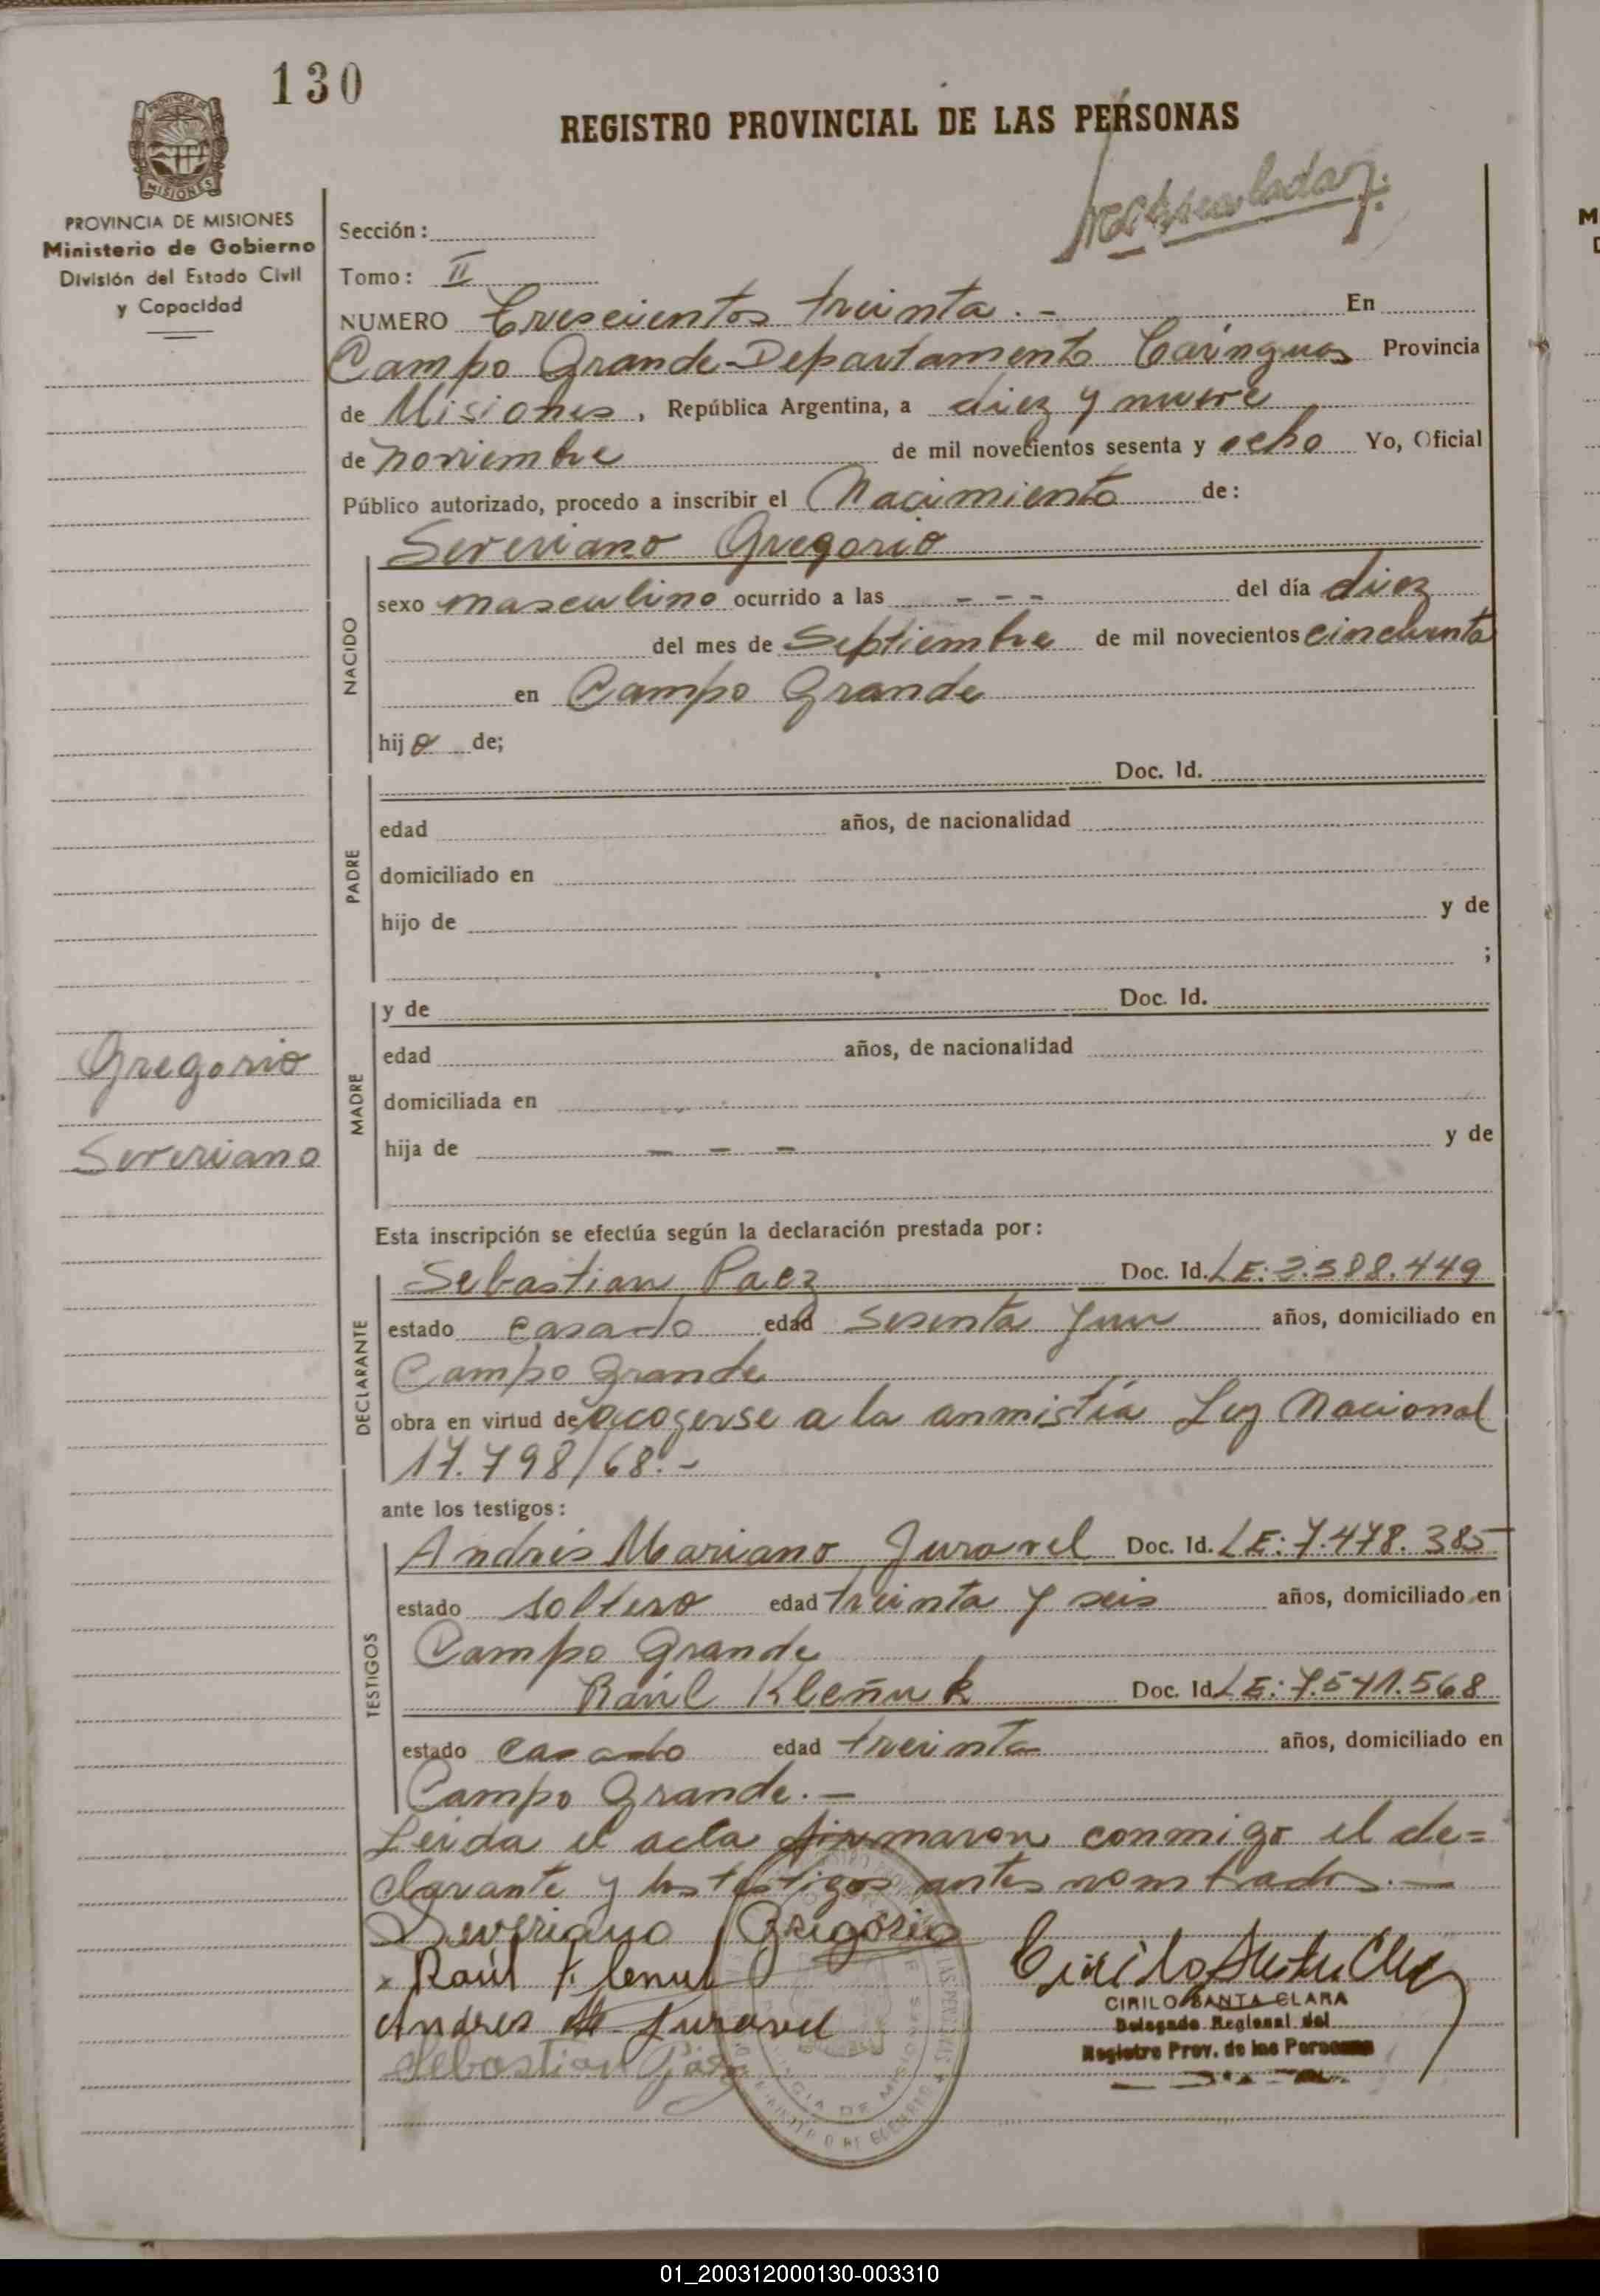 130
REGISTRO PROVINCIAL DE LAS PERSONAS
PROVINCIA DE MISIONES
Ministerio de Gobierno
División del Estado Civil
y Capacidad
Sección:
Tomo: II
NUMERO Trescientos treinta.- En
Campo Grande-Departamento Cainguas Provincia
de Misiones, República Argentina, a diez y nueve
de noviembre de mil novecientos sesenta y ocho Yo, Oficial
Público autorizado, procedo a inscribir el Nacimiento de:
Severiano Gregorio
NACIDO
sexo masculino ocurrido a las - - - del día diez
del mes de Septiembre de mil novecientos cincuenta
en Campo Grande
hijo de;
Doc. Id.
PADRE
edad años, de nacionalidad
domiciliado en
hijo de y de
;
MADRE
y de Doc. Id.
edad años, de nacionalidad
domiciliada en
hija de - - - y de
Gregorio
Severiano
Esta inscripción se efectúa según la declaración prestada por:
DECLARANTE
Sebastian Paez Doc. Id. LE: 2.588.449
estado casado edad sesenta y un años, domiciliado en
Campo Grande
obra en virtud de acogerse a la anmistía Ley Nacional
17.798/68.-
ante los testigos:
TESTIGOS
Andrés Mariano Juravel Doc. Id. LE: 7.478.385
estado soltero edad treinta y seis años, domiciliado en
Campo Grande
Raúl Kleñuk Doc. Id. LE: 7.541.568
estado casado edad treinta años, domiciliado en
Campo Grande.-
Leida el acta firmaron conmigo el de=
clarante y los testigos antes nombrados.-
Severiano Gregorio
Raúl Klenuk
Andres M. Juravel
Sebastian Páez
Cirilo Santa Clara
CIRILO SANTA CLARA
Delegado Regional del
Registro Prov. de las Personas
01_200312000130-003310